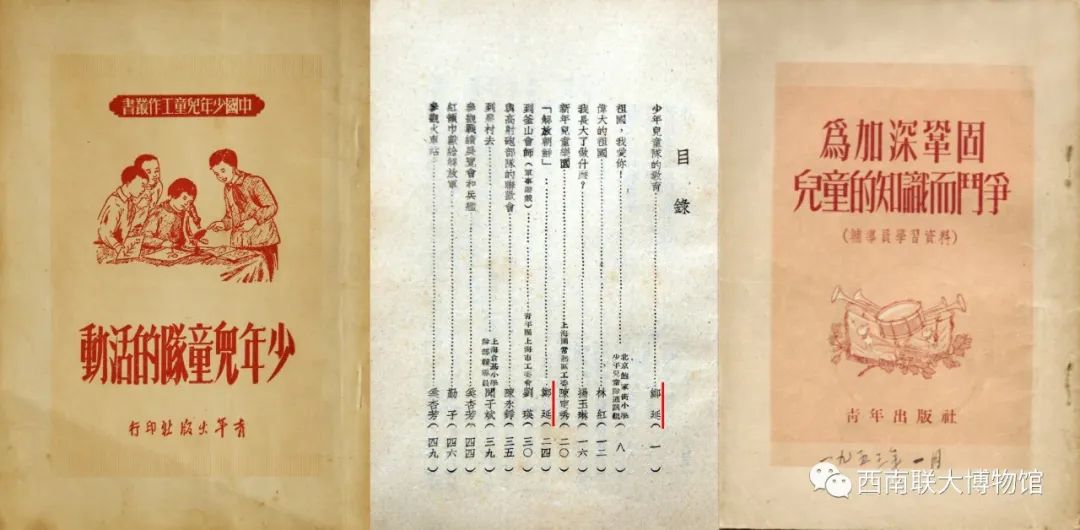 中國少年兒童工作叢書
少年兒童隊的活動
青年出版社印行
目錄
少年兒童隊的教育……鄭延(一)
祖國,我愛你!……北京家街小學少年兒童隊通訊組(八)
偉大的祖國……林紅(一二)
我長大了做什麼?……楊玉琳(一六)
新年兒童樂園……上海團常熟區工委 陳秀(二〇)
「解放朝鮮」……鄭延(二四)
到釜山會師(軍事遊戲)……青年團上海市工委會 劉瑛(三〇)
與高射砲部隊的聯歡會……陳永錚(三五)
到農村去……上海倉基小學 輔導員 子斌(三九)
參觀戰績展覽會和兵艦……吳杏芳(四四)
紅領巾獻給解放軍……勵子(四六)
參觀火車站……吳杏芳(四九)
爲加深鞏固
兒童的知識而鬥爭
(輔導員學習資料)
青年出版社
一九五三年一月
西南联大博物馆